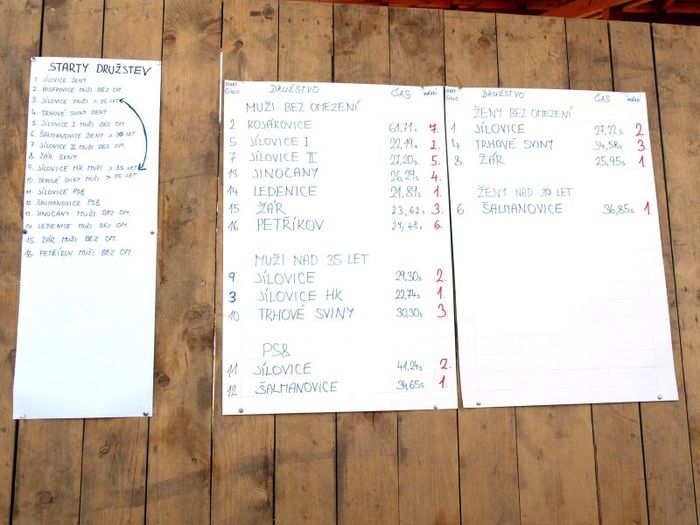 STARTY DRUŽSTEV
1. JÍLOVICE ŽENY
2. KOJÁKOVICE MUŽI BEZ OM.
3. JÍLOVICE MUŽI > 35 LET
4. TRHOVÉ SVINY ŽENY
5. JÍLOVICE I MUŽI BEZ OM.
6. ŠALMANOVICE ŽENY > 30 LET
7. JÍLOVICE II MUŽI BEZ OM.
8. ŽÁR ŽENY
9. JÍLOVICE HK MUŽI > 35 LET
10. TRHOVÉ SVINY MUŽI > 35 LET
11. JÍLOVICE PS8
12. ŠALMANOVICE PS8
13. JINOČANY MUŽI BEZ OM.
14. LEDENICE MUŽI BEZ OM.
15. ŽÁR MUŽI BEZ OM.
16. PETŘÍKOV MUŽI BEZ OM.
START. ČÍSLO DRUŽSTVO ČAS
MUŽI BEZ OMEZENÍ
2 KOJÁKOVICE 61,71s 7.
5 JÍLOVICE I 22,19s 2.
7 JÍLOVICE II 27,20s 5.
13 JINOČANY 26,29s 4.
14 LEDENICE 21,89s 1.
15 ŽÁR 23,62s 3.
16 PETŘÍKOV 27,48s 6.
MUŽI NAD 35 LET
9 JÍLOVICE 29,30s 2.
3 JÍLOVICE HK 22,74s 1.
10 TRHOVÉ SVINY 30,30s 3.
PS8
11 JÍLOVICE 41,24s 2.
12 ŠALMANOVICE 34,65s 1.
START. ČÍSLO DRUŽSTVO ČAS
ŽENY BEZ OMEZENÍ
1 JÍLOVICE 27,22s 2.
4 TRHOVÉ SVINY 34,58s 3.
8 ŽÁR 25,95s 1.
ŽENY NAD 30 LET
6 ŠALMANOVICE 36,85s 1.